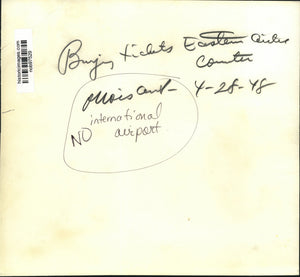 Buying tickets Eastern Airline
Counter
Moisant - 4-28-48
international
NO airport